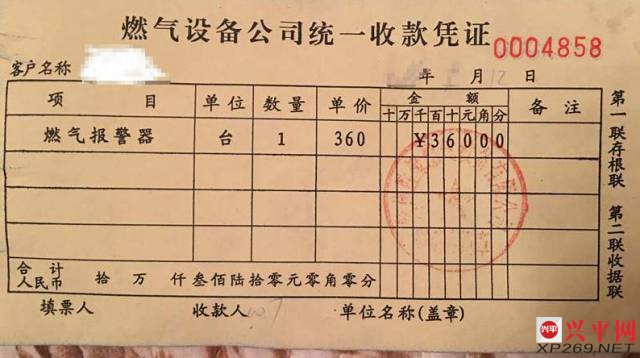 燃气设备公司统一收款凭证 0004858
客户名称 年 月 12 日
项 目 单位 数量 单价 金 额 备 注
十 万 千 百 十 元 角 分
燃气报警器 台 1 360 ¥ 3 6 0 0 0
合 计
人民币 拾 万 仟 叁 佰 陆 拾 零 元 零 角 零 分
填票人 收款人 单位名称(盖章)
第一联存根联 第二联收据联
兴平 兴平网
XP269.NET